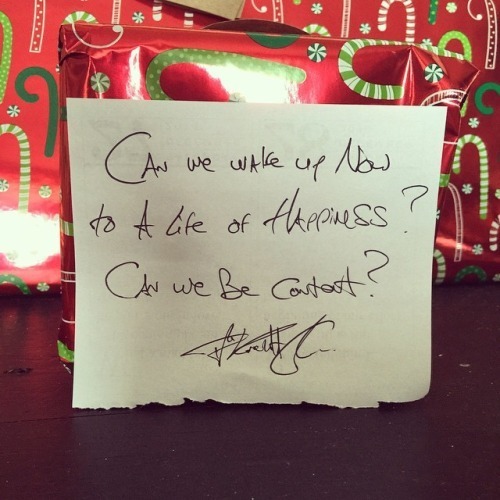 Can we wake up Now
to A life of HAPPiNESS?
Can we Be Content?